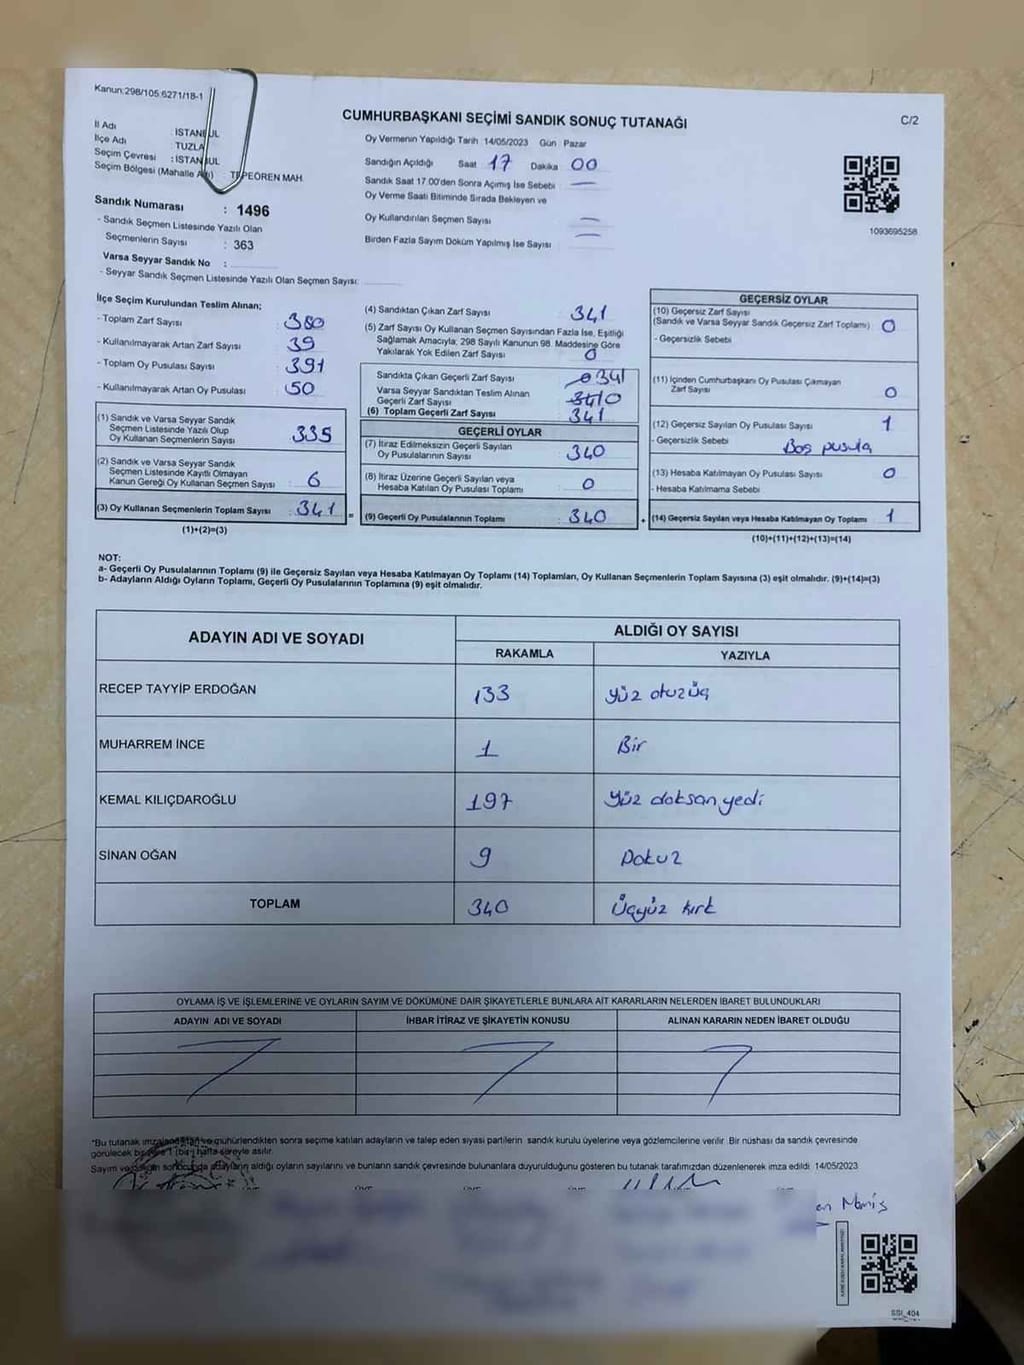 Kanun:298/105 6271/18-1
CUMHURBAŞKANI SEÇİMİ SANDIK SONUÇ TUTANAĞI
C/2
İl Adı : İSTANBUL
İlçe Adı : TUZLA
Seçim Çevresi : İSTANBUL
Seçim Bölgesi (Mahalle Adı) TEPEÖREN MAH.
Sandık Numarası : 1496
- Sandık Seçmen Listesinde Yazılı Olan
Seçmenlerin Sayısı : 363
Varsa Seyyar Sandık No :
- Seyyar Sandık Seçmen Listesinde Yazılı Olan Seçmen Sayısı:
Oy Vermenin Yapıldığı Tarih 14/05/2023 Gün Pazar
Sandığın Açıldığı Saat 17 Dakika 00
Sandık Saat 17.00'den Sonra Açılmış İse Sebebi —
Oy Verme Saati Bitiminde Sırada Bekleyen ve
Oy Kullandırılan Seçmen Sayısı
Birden Fazla Sayım Döküm Yapılmış İse Sayısı
1093695258
İlçe Seçim Kurulundan Teslim Alınan;
- Toplam Zarf Sayısı 380
- Kullanılmayarak Artan Zarf Sayısı 39
- Toplam Oy Pusulası Sayısı 391
- Kullanılmayarak Artan Oy Pusulası 50
(1) Sandık ve Varsa Seyyar Sandık
Seçmen Listesinde Yazılı Olup
Oy Kullanan Seçmenlerin Sayısı 335
(2) Sandık ve Varsa Seyyar Sandık
Seçmen Listesinde Kayıtlı Olmayan
Kanun Gereği Oy Kullanan Seçmen Sayısı 6
(3) Oy Kullanan Seçmenlerin Toplam Sayısı 341 =
(1)+(2)=(3)
(4) Sandıktan Çıkan Zarf Sayısı 341
(5) Zarf Sayısı Oy Kullanan Seçmen Sayısından Fazla İse, Eşitliği
Sağlamak Amacıyla; 298 Sayılı Kanunun 98. Maddesine Göre
Yakılarak Yok Edilen Zarf Sayısı 0
Sandıkta Çıkan Geçerli Zarf Sayısı 341
Varsa Seyyar Sandıktan Teslim Alınan
Geçerli Zarf Sayısı 0
(6) Toplam Geçerli Zarf Sayısı 341
GEÇERLİ OYLAR
(7) İtiraz Edilmeksizin Geçerli Sayılan
Oy Pusulalarının Sayısı 340
(8) İtiraz Üzerine Geçerli Sayılan veya
Hesaba Katılan Oy Pusulası Toplamı 0
(9) Geçerli Oy Pusulalarının Toplamı 340 +
GEÇERSİZ OYLAR
(10) Geçersiz Zarf Sayısı
(Sandık ve Varsa Seyyar Sandık Geçersiz Zarf Toplamı) 0
- Geçersizlik Sebebi
(11) İçinden Cumhurbaşkanı Oy Pusulası Çıkmayan
Zarf Sayısı 0
(12) Geçersiz Sayılan Oy Pusulası Sayısı 1
- Geçersizlik Sebebi Boş pusula
(13) Hesaba Katılmayan Oy Pusulası Sayısı 0
- Hesaba Katılmama Sebebi
(14) Geçersiz Sayılan veya Hesaba Katılmayan Oy Toplamı 1
(10)+(11)+(12)+(13)=(14)
NOT:
a- Geçerli Oy Pusulalarının Toplamı (9) ile Geçersiz Sayılan veya Hesaba Katılmayan Oy Toplamı (14) Toplamları, Oy Kullanan Seçmenlerin Toplam Sayısına (3) eşit olmalıdır. (9)+(14)=(3)
b- Adayların Aldığı Oyların Toplamı, Geçerli Oy Pusulalarının Toplamına (9) eşit olmalıdır.
ADAYIN ADI VE SOYADI
ALDIĞI OY SAYISI
RAKAMLA YAZIYLA
RECEP TAYYİP ERDOĞAN 133 Yüz otuzüç
MUHARREM İNCE 1 Bir
KEMAL KILIÇDAROĞLU 197 Yüz doksan yedi
SİNAN OĞAN 9 Dokuz
TOPLAM 340 Üçyüz kırk
OYLAMA İŞ VE İŞLEMLERİNE VE OYLARIN SAYIM VE DÖKÜMÜNE DAİR ŞİKAYETLERLE BUNLARA AİT KARARLARIN NELERDEN İBARET BULUNDUKLARI
ADAYIN ADI VE SOYADI İHBAR İTİRAZ VE ŞİKAYETİN KONUSU ALINAN KARARIN NEDEN İBARET OLDUĞU
*Bu tutanak imzalandıktan ve mühürlendikten sonra seçime katılan adayların ve talep eden siyasi partilerin sandık kurulu üyelerine veya gözlemcilerine verilir. Bir nüshası da sandık çevresinde
görülecek bir yere 1 (bir) hafta süreyle asılır.
Sayım ve döküm sonucunda adayların aldığı oyların sayılarını ve bunların sandık çevresinde bulunanlara duyurulduğunu gösteren bu tutanak tarafımızdan düzenlenerek imza edildi. 14/05/2023
SSI_404